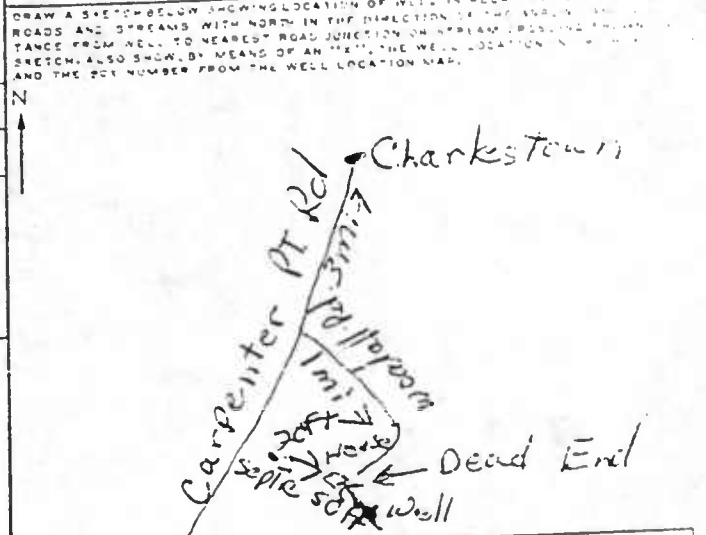 DRAW A SKETCH BELOW SHOWING LOCATION OF WELL IN
ROADS AND STREAMS WITH NORTH IN THE DIRECTION OF THE
TANCE FROM WELL TO NEAREST ROAD JUNCTION OR STREAM
SKETCH. ALSO SHOW, BY MEANS OF AN "X", THE WELL LOCATION IN
AND THE BOX NUMBER FROM THE WELL LOCATION MAP.
N
Charkestown
Carpenter PT Rd
3mi
woodall Rd
1mi
House
Dead End
Septic
50ft
Well